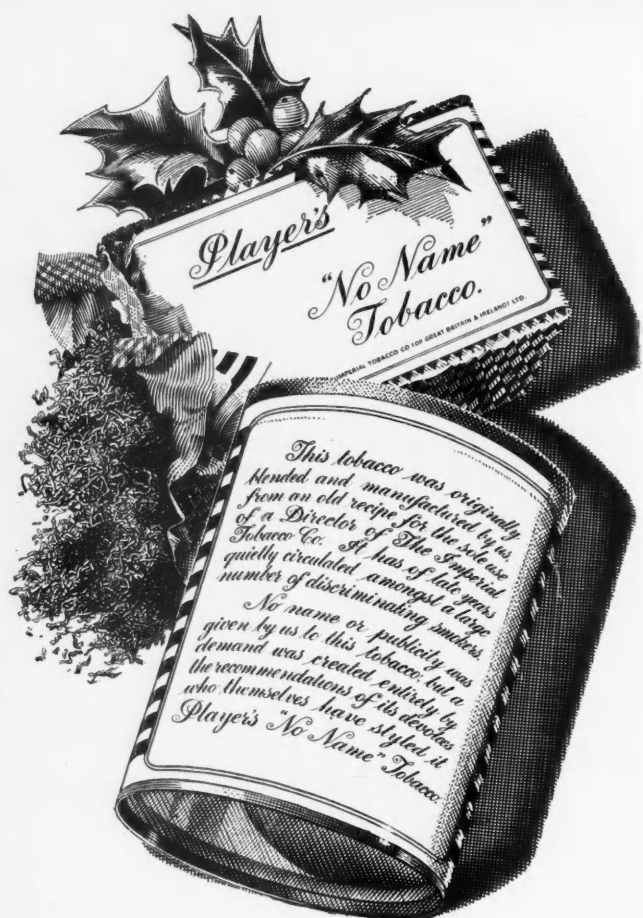 Player's
"No Name"
Tobacco.
IMPERIAL TOBACCO CO (OF GREAT BRITAIN & IRELAND) LTD.
This tobacco was originally
blended and manufactured by us,
from an old recipe for the sole use
of a Director of The Imperial
Tobacco Co. It has of late years
quietly circulated amongst a large
number of discriminating smokers.
No name or publicity was
given by us to this tobacco, but a
demand was created entirely by
the recommendations of its devotees
who themselves have styled it
Player's "No Name" Tobacco.